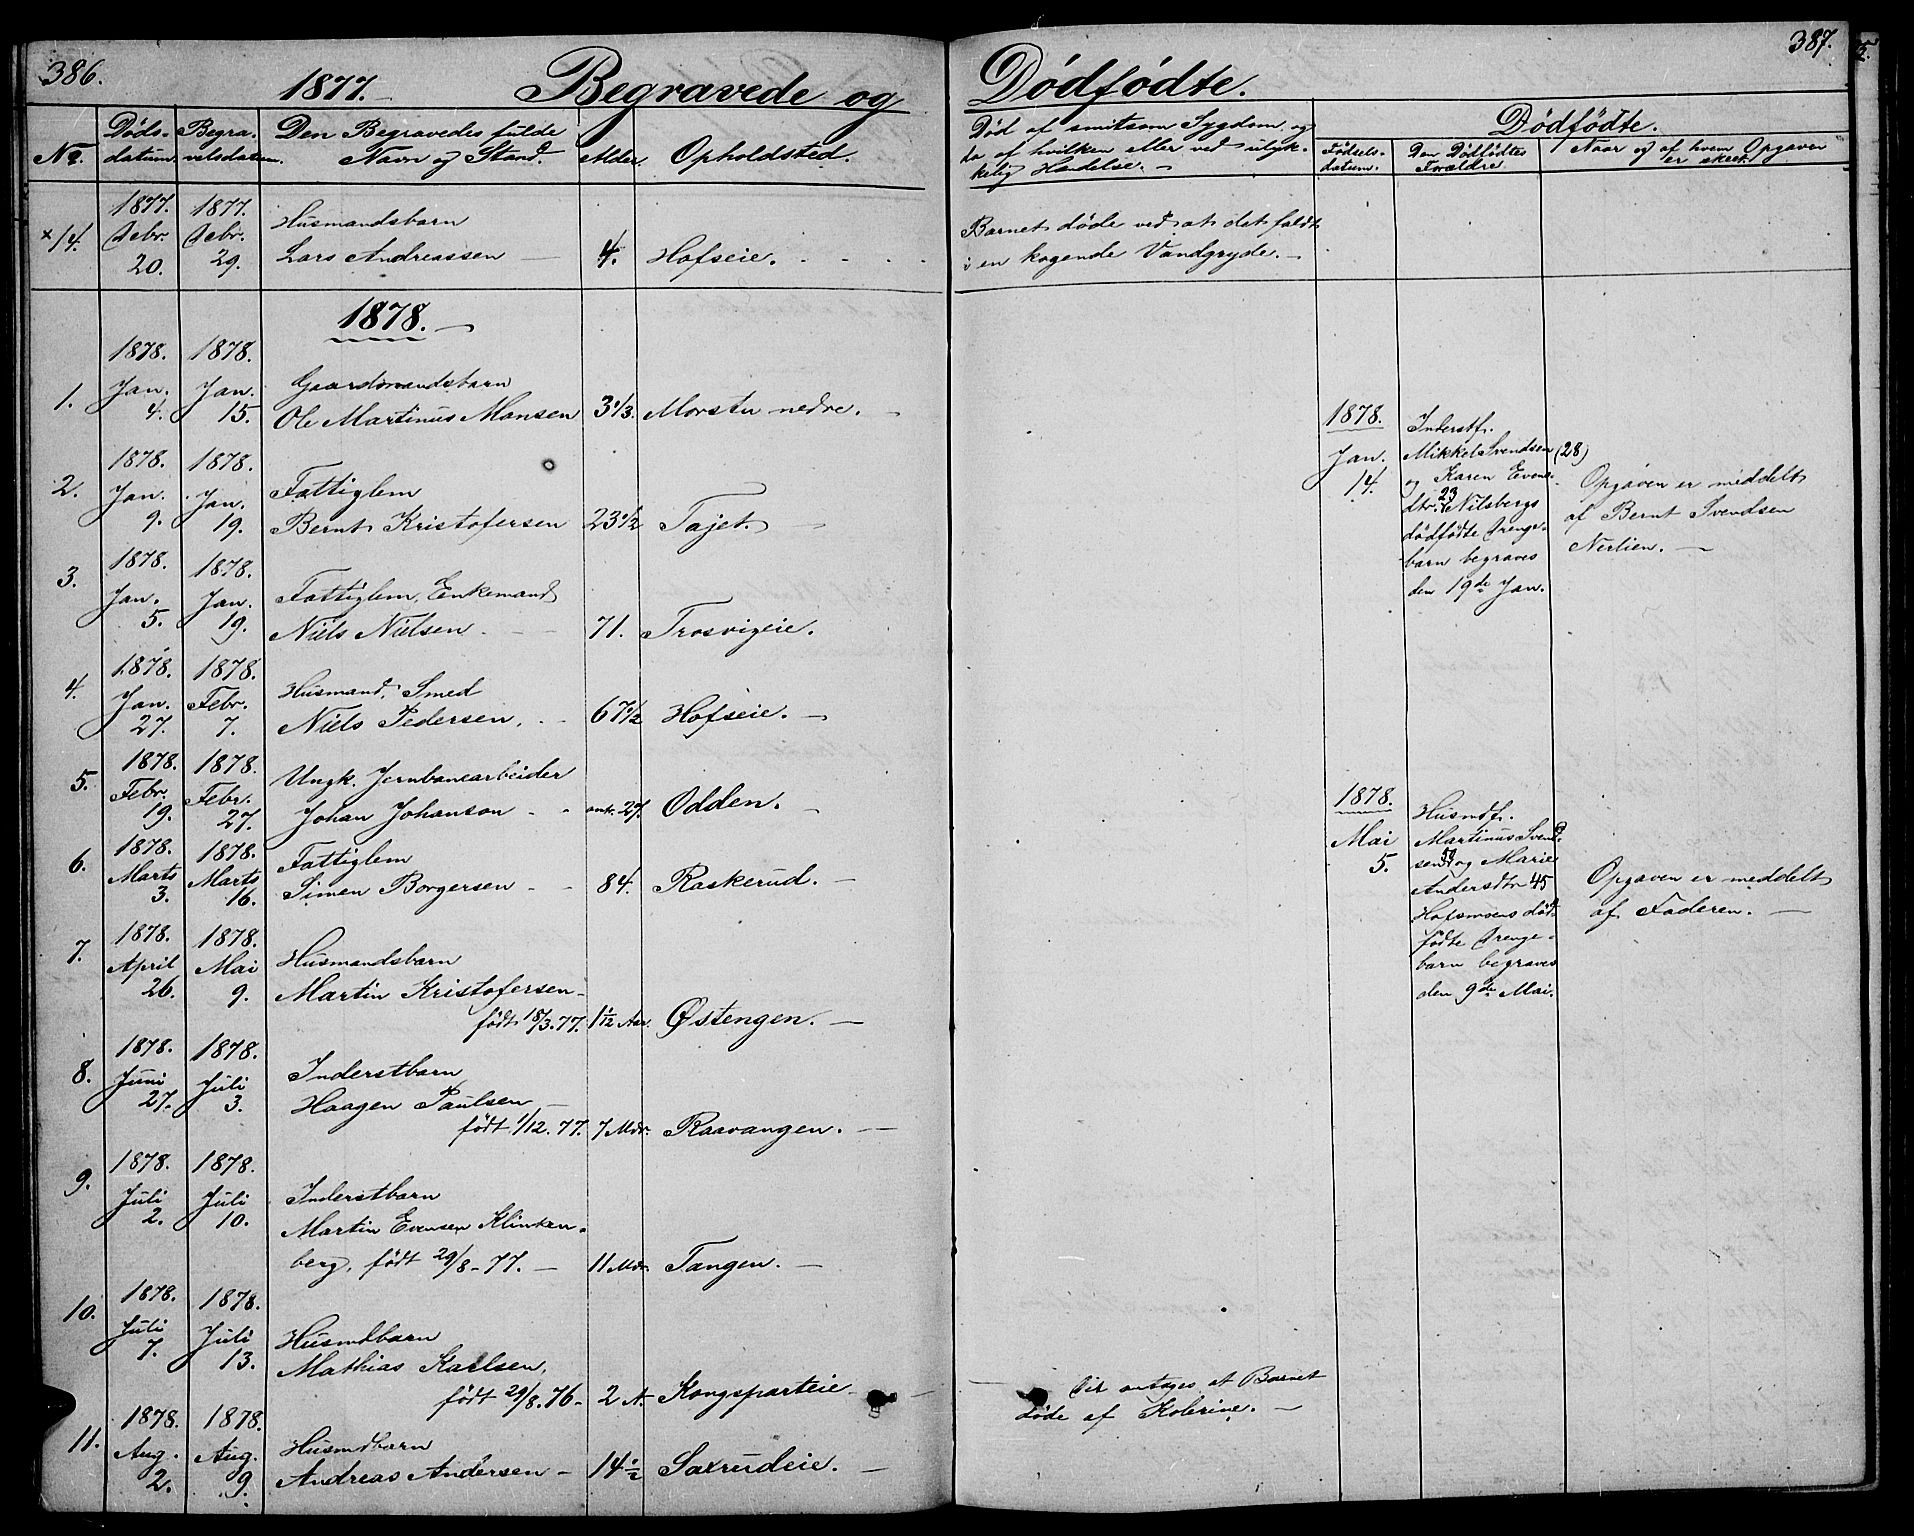 386.
1877. Begravede og
No. Døds- Begra- Den Begravedes fulde
datum. velsdatum. Navn og Stand. Alder. Opholdsted.
1877. 1877. Husmandsbarn
×14. 20. 29. Lars Andreassen 4. Hofseie.
1878.
1878. 1878.
Jan. Jan. Gaardmandsbarn
1. 4. 15. Ole Martinus Hansen 3 1/3. Morstu nedre.
1878. 1878.
2. Jan. Jan. Fattiglem
9. 19. Bernt Kristofersen 23 1/2 Tajet.
1878. 1878.
3. Jan. Jan. Fattiglem, Enkemand
5. 19. Niels Nielsen 71. Trosvigeie.
1878. 1878.
4. Jan. Febr. Husmand, Smed
27. 7. Niels Pedersen. 67 1/2 Hofseie.
1878. 1878.
5. Febr. Febr. Ungk. Jernbanearbeider
19. 27. Johan Johanson omt. 27. Odden.
1878. 1878.
6. Marts Marts Fattiglem
3. 16. Simen Borgersen 84. Raskerud.
1878. 1878.
7. April Mai Husmandsbarn
26. 9. Martin Kristofersen
født 18/3.77. 1 1/12 Aar. Østengen.
1878. 1878.
8. Juni Juli Inderstbarn
27. 3. Haagen Paulsen
født 1/12.77. 7 Mdr. Raavangen.
1878. 1878.
9. Juli Juli Inderstbarn
2. 10. Martin Evensen Klinken-
berg, født 29/8-77. 11 Mdr. Tangen.
1878. 1878.
10. Juli Juli Husmdbarn
7. 13. Mathias Karlsen,
født 29/8.76. 2 A. Kongsparteie
1878. 1878.
11. Aug. Aug. Husmdbarn
2. 9. Andreas Andersen 14 1/2 Saxrudeie.
387.
Dødfødte.
Død af smitsom Sygdom og
da af hvilken eller ved ulyk-
kelig Hændelse.
Dødfødte.
Fødsels- Den Dødfødtes Naar og af hvem Opgaven
datum. Forældre. er skeet.
Barnet døde ved at det faldt
i en kogende Vandgryde.
1878. Inderstf.
Jan. Mikkel Svendsen (28)
14. og Karen Evens-
dtr. 23 Nilsbergs
dødfødte Drenge-
barn begraves
den 19de Jan.
Opgaven er meddelt
af Bernt Svendsen
Nerlien.
1878. Husmdf.
Mai Martinus Svend-
5. sen og Marie
Andersdtr 45
død-
fødte Drenge-
barn begraves
den 9de Mai.
Opgaven er meddelt
af Faderen.
Dir antages at Barnet
døde af Kolerine.